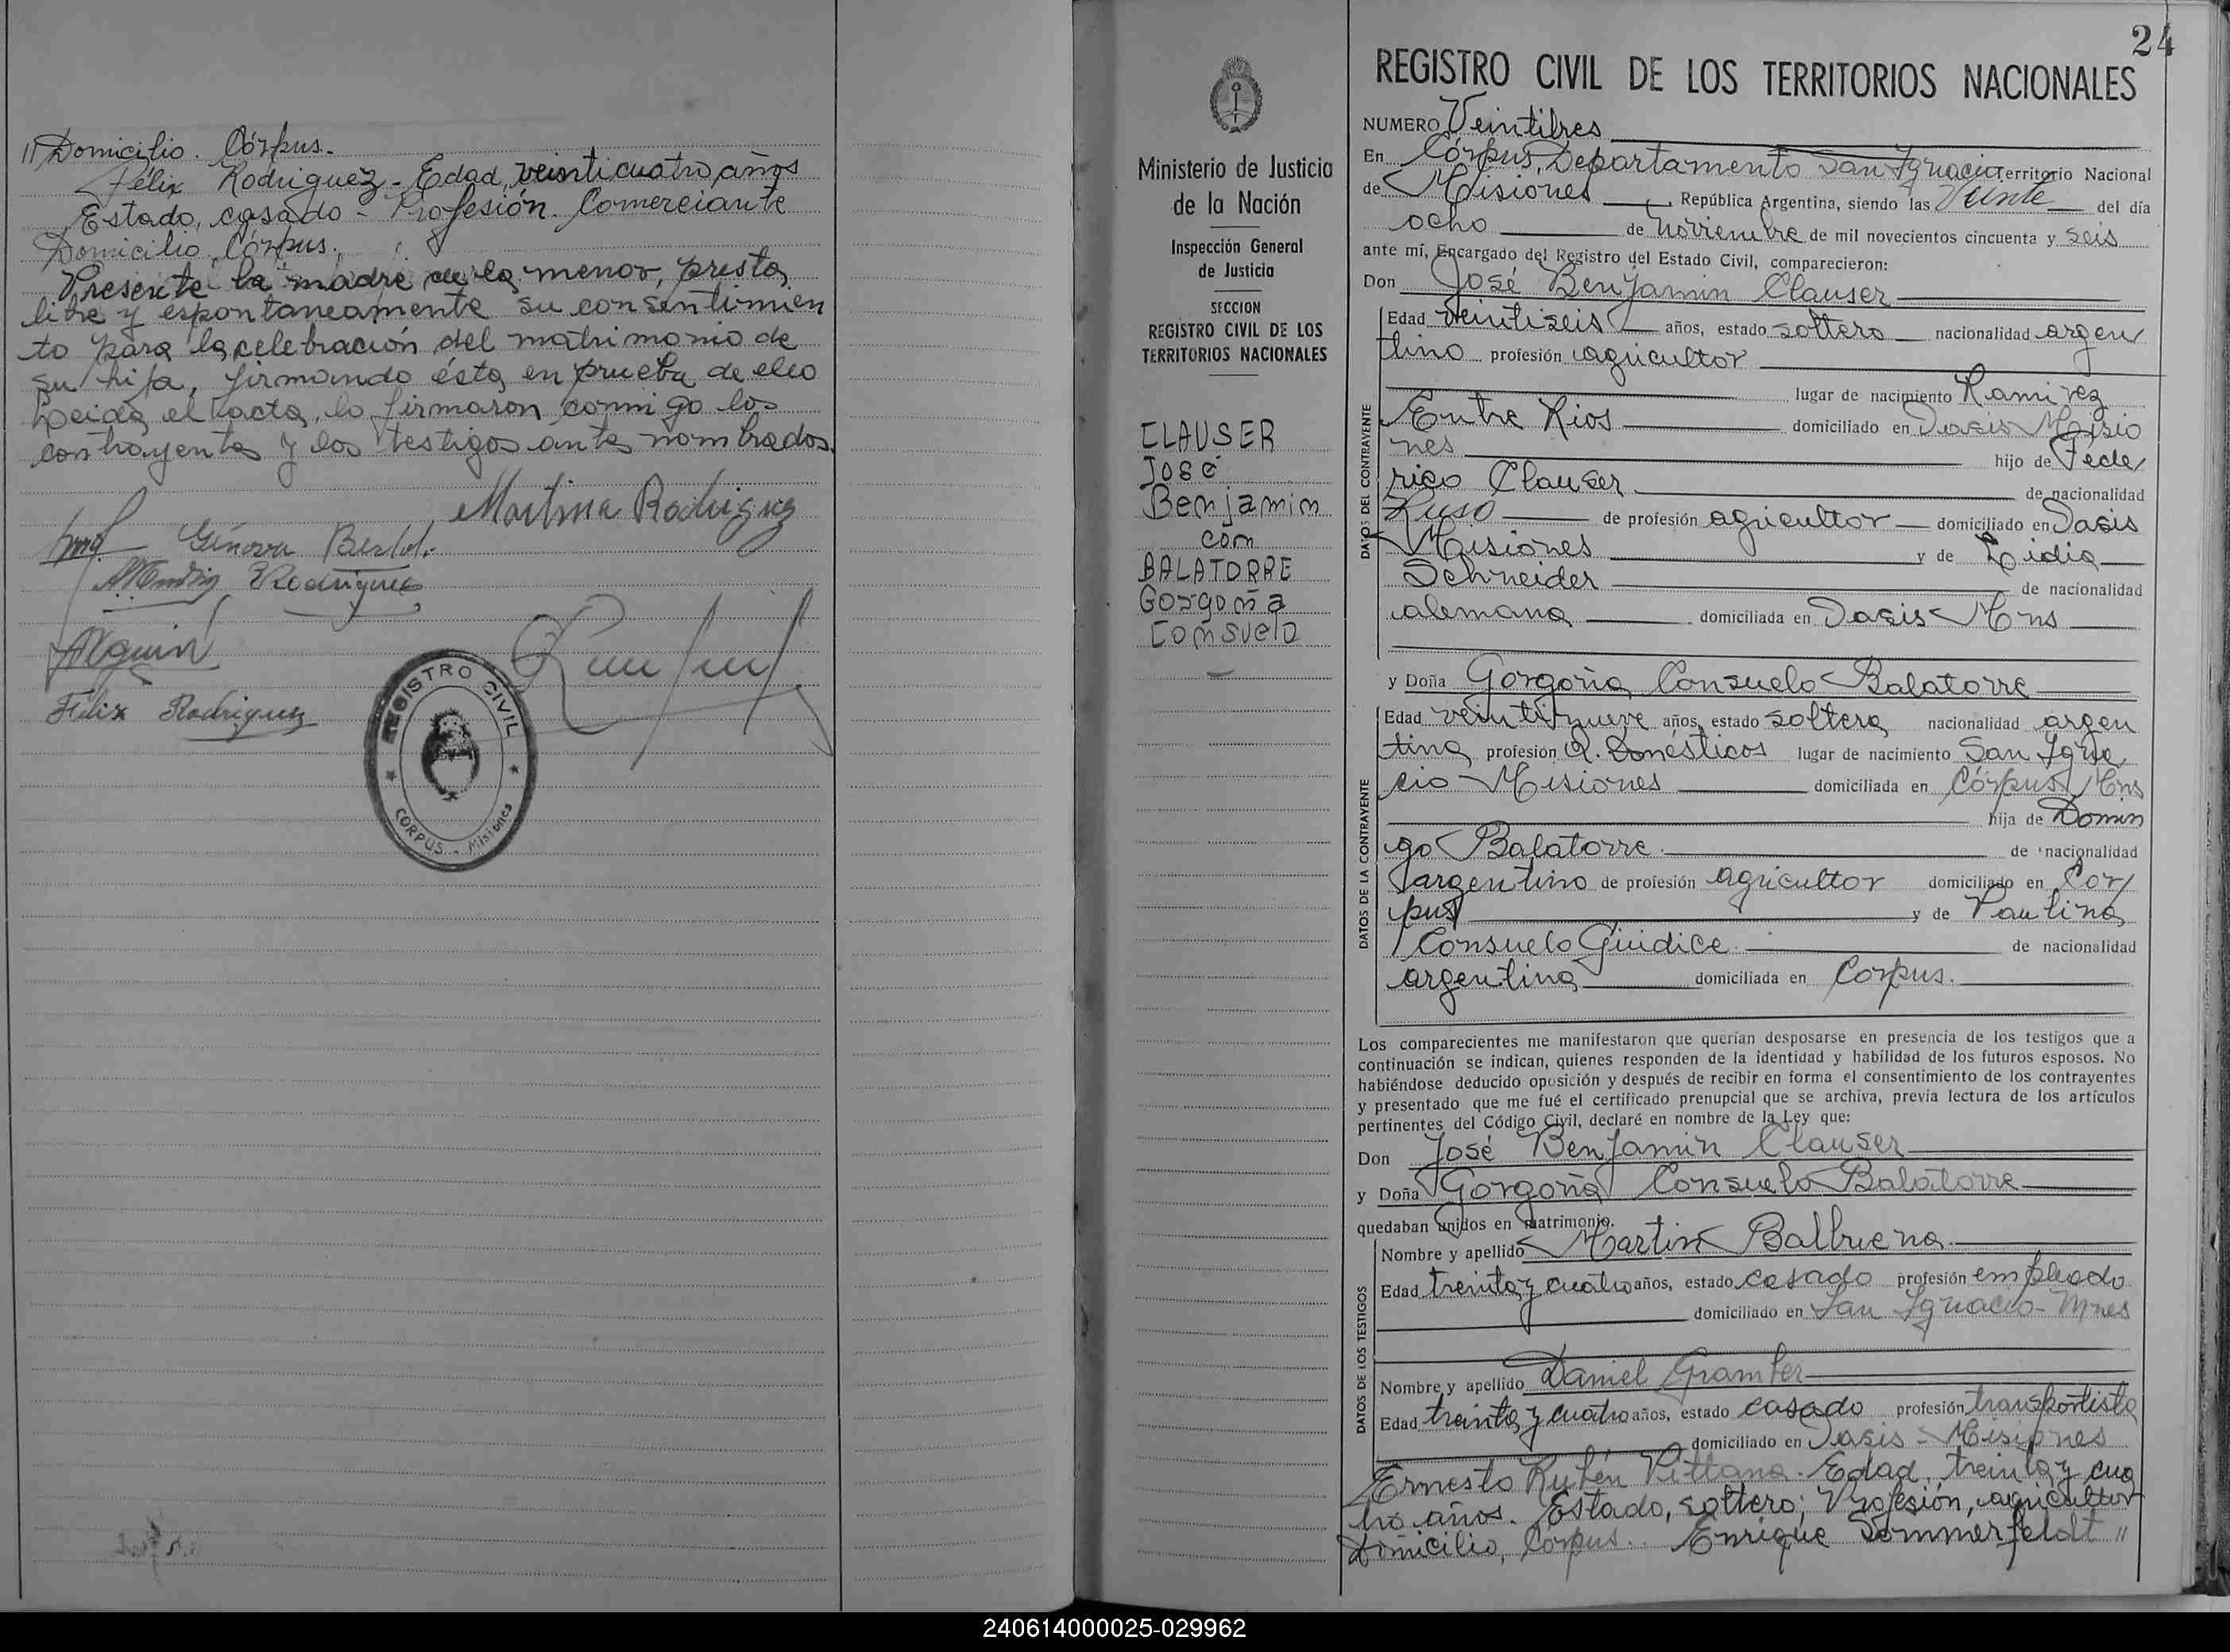 // Domicilio. Córpus.
Félix Rodriguez - Edad, veinticuatro años
Estado, casado - Profesión. Comerciante
Domicilio, Córpus.
Presente la madre de la menor, presta
libre y espontaneamente su consentimien
to para la celebración del matrimonio de
su hija, firmando ésta en prueba de ello
Leida el acta, lo firmaron conmigo los
contrayentes y los testigos antes nombrados.
Martina Rodriguez
Génova
Rodriguez
Félix Rodriguez
REGISTRO CIVIL
CORPUS - Misiones
Ministerio de Justicia
de la Nación
Inspección General
de Justicia
SECCION
REGISTRO CIVIL DE LOS
TERRITORIOS NACIONALES
CLAUSER
José
Benjamin
con
BALATORRE
Gorgoña
Consuelo
24
REGISTRO CIVIL DE LOS TERRITORIOS NACIONALES
NUMERO Veintitres
En Córpus, Departamento San Ignacio Territorio Nacional
de Misiones, República Argentina, siendo las Veinte del día
ocho de Noviembre de mil novecientos cincuenta y seis
ante mí, Encargado del Registro del Estado Civil, comparecieron:
Don José Benjamin Clauser
DATOS DEL CONTRAYENTE
Edad veintiseis años, estado soltero nacionalidad argen
tino profesión agricultor
lugar de nacimiento Ramirez
Entre Rios domiciliado en Oasis Misio
nes hijo de Fede
rico Clauser de nacionalidad
Ruso de profesión agricultor domiciliado en Oasis
Misiones y de Lidia
Schneider de nacionalidad
alemana domiciliada en Oasis Mns
y Doña Gorgoña Consuelo Balatorre
DATOS DE LA CONTRAYENTE
Edad veintinueve años, estado soltera nacionalidad argen
tina profesión Q. Domésticos lugar de nacimiento San Igna
cio - Misiones domiciliada en Córpus Mns
hija de Domin
go Balatorre de nacionalidad
argentino de profesión agricultor domiciliado en Cor
pus y de Paulina
Consuelo Giudice de nacionalidad
argentina domiciliada en Corpus.
Los comparecientes me manifestaron que querían desposarse en presencia de los testigos que a
continuación se indican, quienes responden de la identidad y habilidad de los futuros esposos. No
habiéndose deducido oposición y después de recibir en forma el consentimiento de los contrayentes
y presentado que me fué el certificado prenupcial que se archiva, previa lectura de los artículos
pertinentes del Código Civil, declaré en nombre de la Ley que:
Don José Benjamin Clauser
y Doña Gorgoña Consuelo Balatorre
quedaban unidos en matrimonio.
DATOS DE LOS TESTIGOS
Nombre y apellido Martin Balbuena
Edad treinta y cuatro años, estado casado profesión empleado
domiciliado en San Ignacio - Mnes
Nombre y apellido Daniel
Edad treinta y cuatro años, estado casado profesión transportista
domiciliado en Oasis - Misiones
Ernesto Rubén Edad, treinta y cua
tro años. Estado, soltero; Profesión, agricultor
Domicilio, Córpus.. Enrique Sommerfeldt //
240614000025-029962